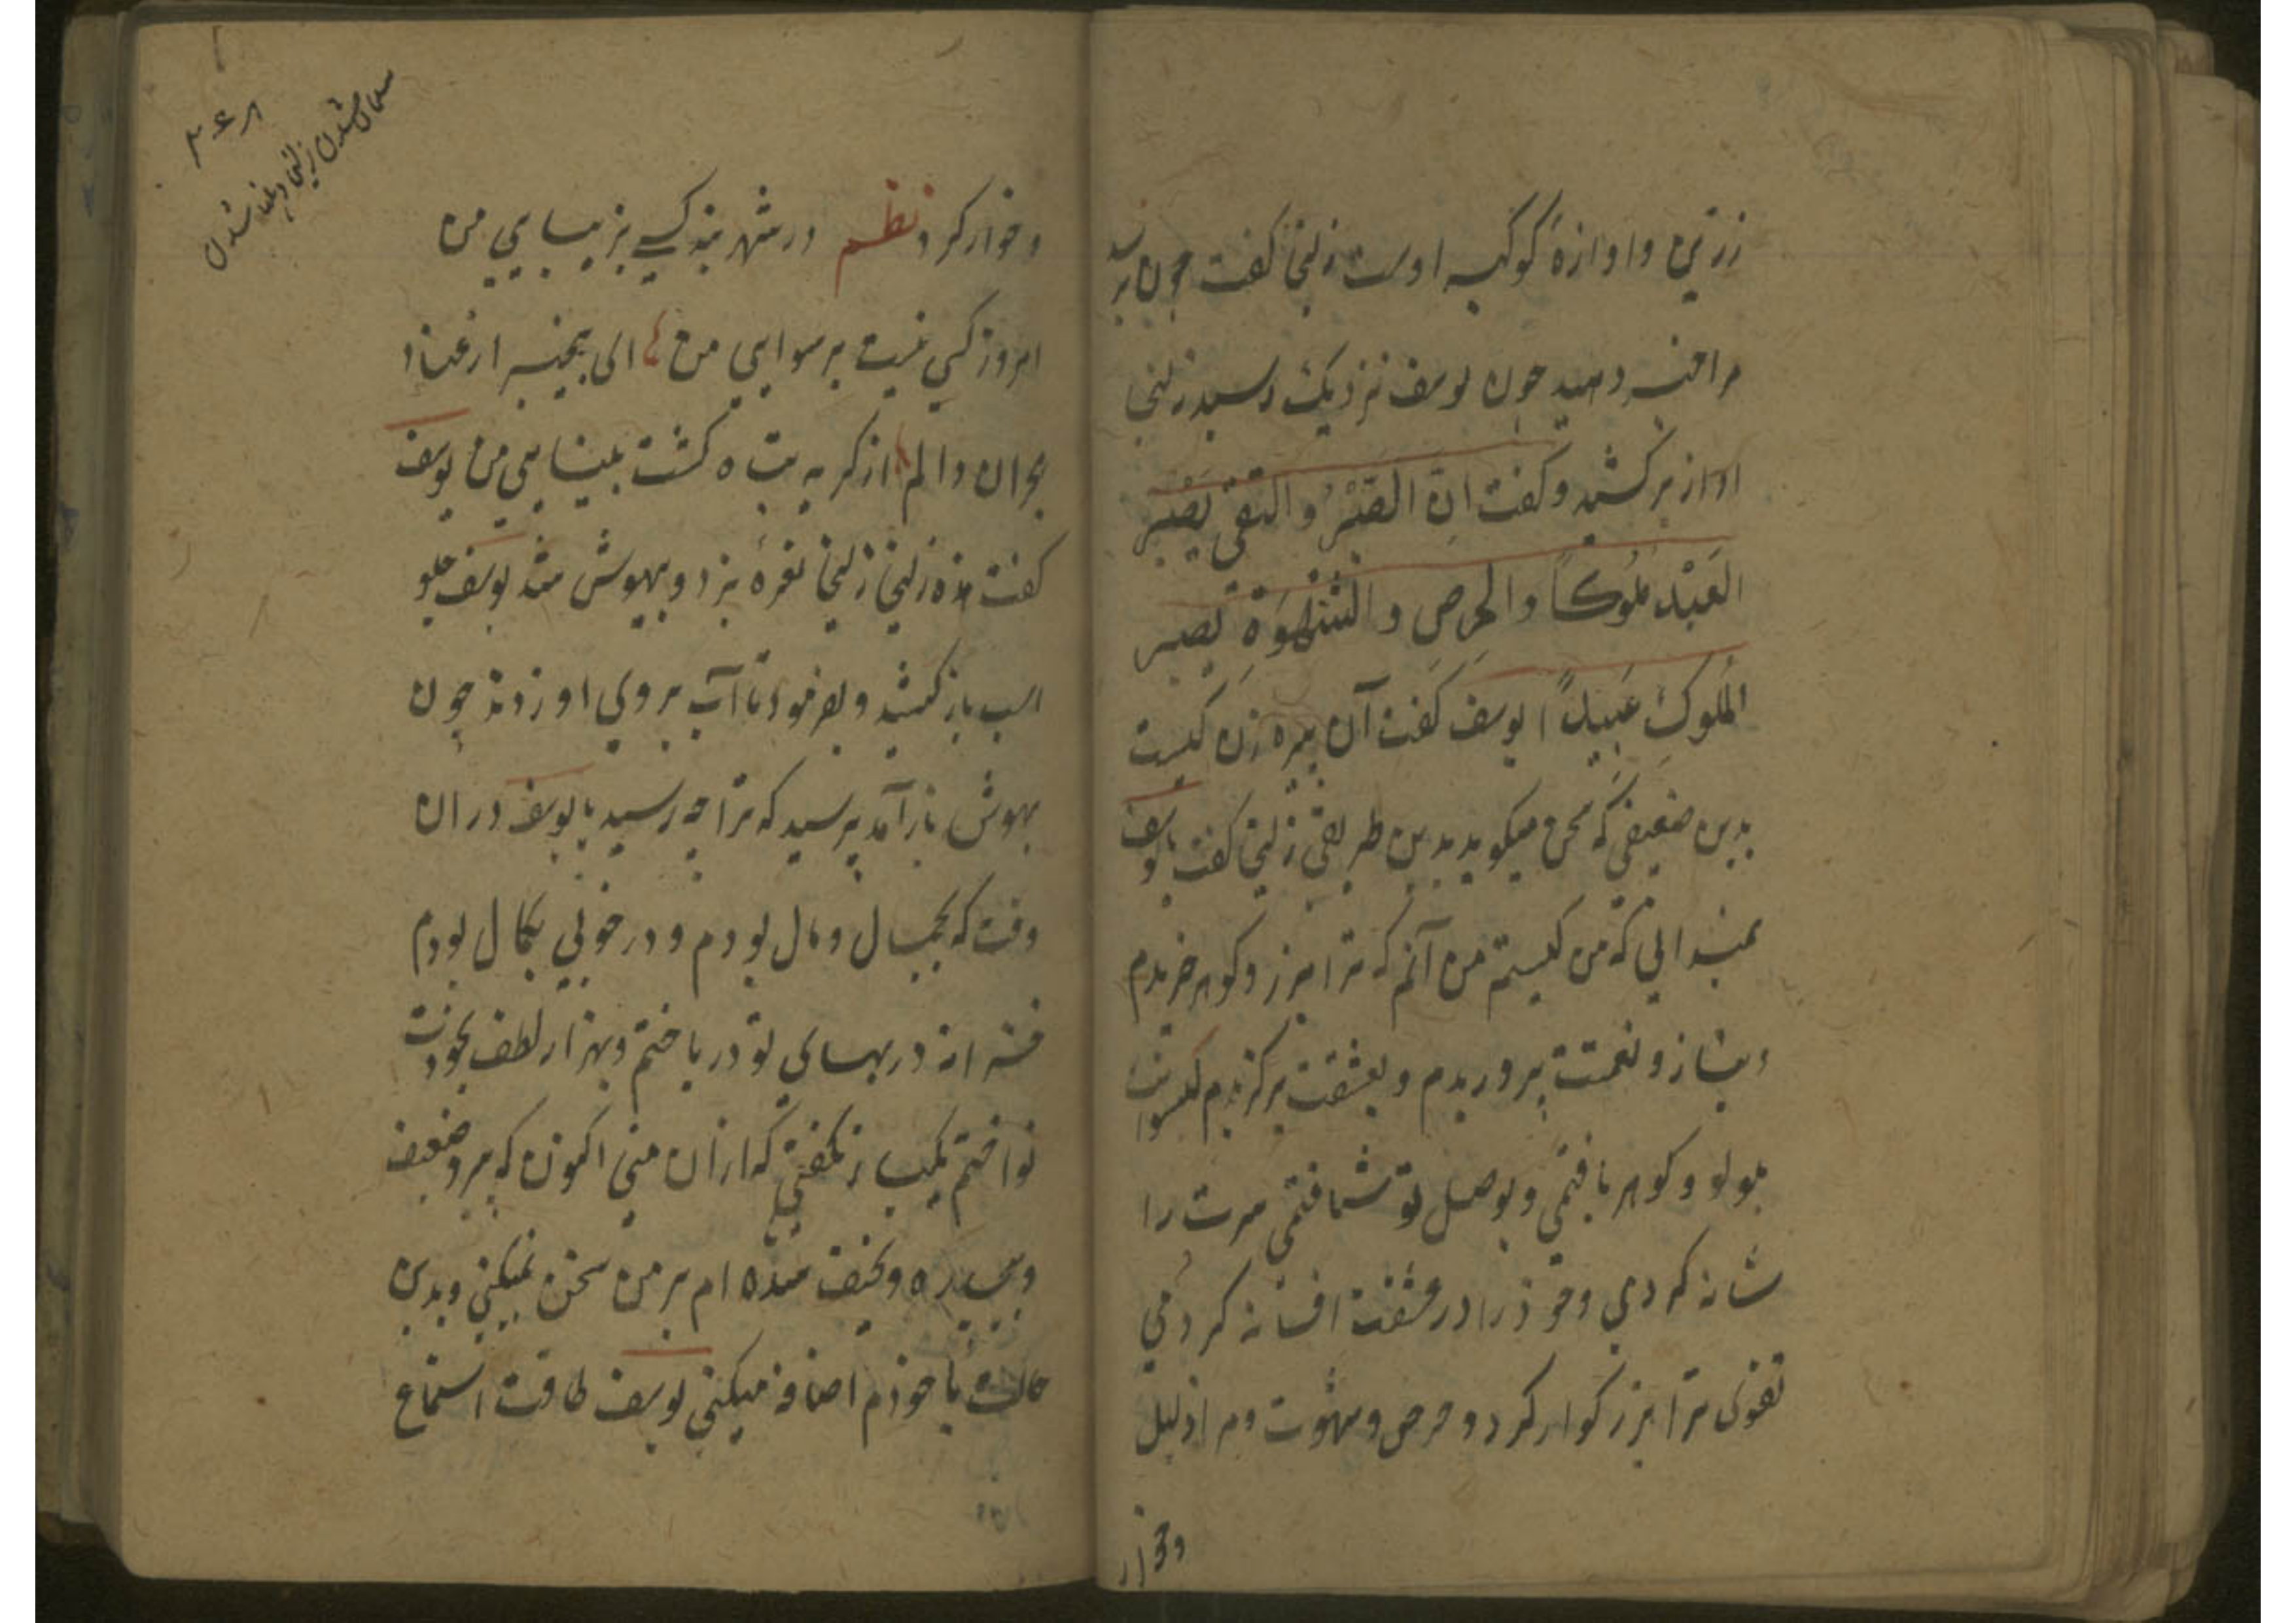 زرین و اوازهٔ کوکبه اوست زلیخا کفت چون برسد
مرا خبر دهید چون یوسف نزدیک رسید زلیخا
اواز برکشید و کفت انّ الصّبر و التقی یصیر
العَبْد ملُوکاً والحرص و الشَهْوَة یصیر
المُلوکَ عَبیداً یوسف کفت آن پیره زن کیست
بدین ضعیفی که سخن میکوید بدین طریقی زلیخا کفت یا یوسف
نمیدانی که من کیستم من آنم که ترا بزر و کوهر خریدم
و بناز و نعمتت پروریدم و بعشقت برکزیدم کیسوانت
بلولو و کوهر بافتمی و بوصل تو شتافتمی سرت را
شانه کردمی و خوذ را در عشقت افسانه کردمی
تقوی ترا بزرکوار کرد و حرص و شهوت مرا ذلیل
و خوار
۳۶۸
زلیخا و بینا شدن
و خوار کرد نظم در شهر بذ کسی بزیبایی من
امروز کسی نیست برسوایی من الی
بحران و الم از کریه تباه کشت بینایی من یوسف
کفت ای زلیخا زلیخا نعرهٔ بزد و بیهوش شد یوسف جلو
اسب باز کشید و بفرمود تا آب بر روی او زدند چون
بهوش باز آمد پرسید که ترا چه رسید یا یوسف در ان
وقت که بجمال و مال بودم و در خوبی بکمال بودم
خزانه در بهای تو در باختم و بهزار لطف بخودت
نواختم یکبار نکفتی که ازان منی اکنون که پیر و ضعیف
و بیچاره و نحیف شده ام بر من سخن نمیکنی و بدین
حالت با خوذم اضافه میکنی یوسف طاقت استماع